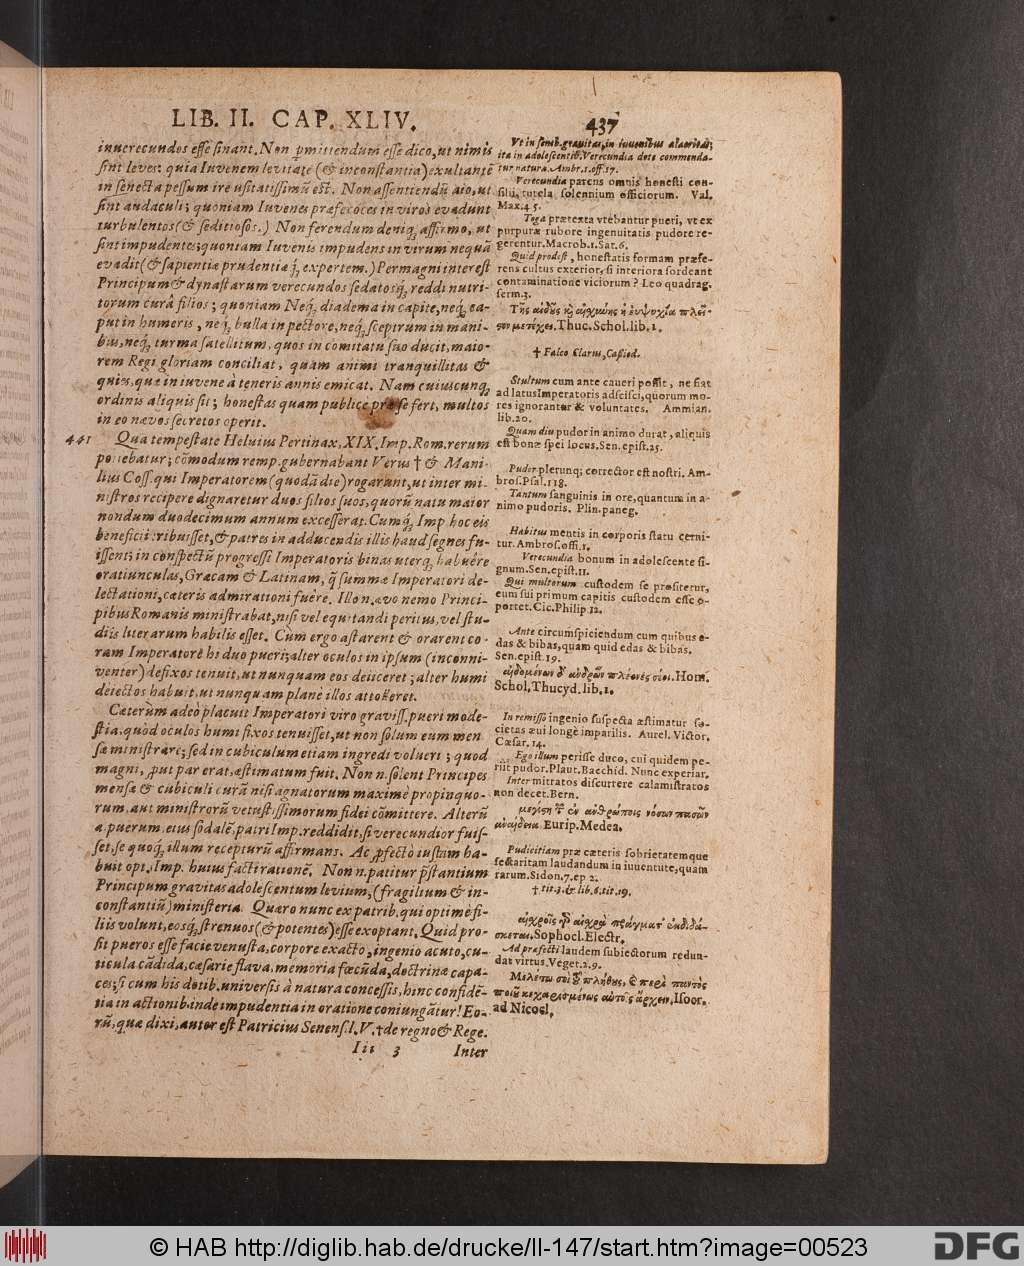 LIB. II. CAP. XLIV. 437
inuerecundos esſe ſinant. Non p̱mittendum eſſe dico, ut nimis
ſint leves: quia Iuvenem levitate (& inconſtantia) exultantē
in ſenecta peſſum ire uſitatiſſimū eſt. Non aſſentiendū aio, ut
ſint audaculi; quoniam Iuvenes præferoces in viros evadunt
turbulentos (& ſeditioſos.) Non ferendum deniq; affirmo, ut
ſint impudentes; quoniam Iuvenis impudens in virum nequā
evadit (& ſapientiæ prudentiæq́; expertem.) Permagni intereſt
Principum & dynaſtarum verecundos ſedatosq́; reddi nutri-
torum curâ filios; quoniam Neq́; diadema in capite, neq́; ca-
put in humeris, neq́; bulla in pectore, neq́; ſceptrum in mani-
bus, neq́; turma ſatellitum, quos in comitatu ſuo ducit, maio-
rem Regi gloriam conciliat, quam animi tranquillitas &
quies, quæ in iuvene à teneris annis emicat. Nam cuiuscunq́;
ordinis aliquis ſit; honeſtas quam publice præ ſe fert, multos
in eo nævos ſecretos operit.
441 Qua tempeſtate Helvius Pertinax, XIX. Imp. Rom. rerum
potiebatur; cōmodum remp. gubernabant Verus † & Mani-
lius Coſſ. qui Imperatorem (quodā die) rogarunt, ut inter mi-
niſtros recipere dignaretur duos filios ſuos, quorū natu maior
nondum duodecimum annum exceſſerat. Cumq́; Imp. hoc eis
beneficii tribuiſſet, & patres in adducendis illis haud ſegnes fu-
iſſent; in conſpectū progreſſi Imperatoris binas uterq́; habuêre
oratiunculas, Græcam & Latinam, q̄ ſummæ Imperatori de-
lectationi, cæteris admirationi fuêre. Illo n. ævo nemo Princi-
pibus Romanis miniſtrabat, niſi vel equitandi peritus, vel ſtu-
diis literarum habilis eſſet. Cùm ergo aſtarent & orarent co-
ram Imperatore hi duo pueri; alter oculos in ipſum (inconni-
venter) defixos tenuit, ut nunquam eos deiiceret; alter humi
deiectos habuit, ut nunquam planè illos attolleret.
Cæterùm adeò placuit Imperatori viro graviſſ. pueri mode-
ſtia, quòd oculos humi fixos tenuiſſet, ut non ſolum eum men-
ſæ miniſtrare; ſed in cubiculum etiam ingredi voluerit; quod
magni, ꝓut par erat, æſtimatum fuit. Non n. ſolent Principes
menſæ & cubiculi curā niſi agnatorum maximè propinquo-
rum, aut miniſtrorū vetuſtiſſimorum fidei cōmittere. Alterū
a. puerum, eius ſodalē, patri Imp. reddidit, ſi verecundior fuiſ-
ſet, ſe quoq́; illum recepturū affirmans. Ac ꝓfectò iuſtam ha-
buit opt. Imp. huius facti rationē. Non n. patitur p̄ſtantium
Principum gravitas adoleſcentum levium, (fragilium & in-
conſtantiū) miniſteria. Quæro nunc ex patrib. qui optimè fi-
liis volunt, eosq́; ſtrenuos (& potentes) eſſe exoptant. Quid pro-
ſit pueros eſſe facie venuſta, corpore exacto, ingenio acuto, cu-
ticula cādida, cæſarie flava, memoria fœcūda, doctrinæ capa-
ces; ſi cum his dotib. univerſis à natura conceſſis, hinc confidē-
tia in actionib. inde impudentia in oratione coniungātur! Eo-
rū, quæ dixi, autor eſt Patricius Senenſ. l. V. † de regno & Rege.
Iii 3 Inter
Vt in ſenib. gravitas, in iuvenibus alacritas;
ita in adoleſcentib. Verecundia dote commenda-
tur natura. Ambr. 1. off. 17.
Verecundia parens omnis honeſti con-
ſilii, tutela ſolennium officiorum. Val.
Max. 4 5.
Toga prætexta vtebantur pueri, vt ex
purpuræ rubore ingenuitatis pudore re-
gerentur. Macrob. 1. Sat. 6.
Quid prodeſt, honeſtatis formam præfe-
rens cultus exterior, ſi interiora ſordeant
contaminatione vitiorum? Leo quadrag.
ſerm. 3.
Τῆς αἰδοῦς καὶ αἰσχύνης ἡ εὐψυχία πλεῖ-
ςον μετέχει. Thuc. Schol. lib. 1.
† Falco Clarus, Capied.
Stultum cum ante caveri poſſit, ne fiat
ad latus Imperatoris adſciſci, quorum mo-
res ignorantur & voluntates. Ammian.
lib. 20.
Quam diu pudor in animo durat, aliquis
eſt bonæ ſpei locus. Sen. epiſt. 25.
Pudor plerunq; corrector eſt noſtri. Am-
broſ. Pſal. 118.
Tantum ſanguinis in ore, quantum in a-
nimo pudoris. Plin. paneg.
Habitus mentis in corporis ſtatu cerni-
tur. Ambroſ. offi. 1.
Verecundia bonum in adoleſcente ſi-
gnum. Sen. epiſt. 11.
Qui multorum cuſtodem ſe profitetur,
eum ſui primum capitis cuſtodem eſſe o-
portet. Cic. Philip. 12.
Ante circumſpiciendum cum quibus e-
das & bibas, quam quid edas & bibas.
Sen. epiſt. 19.
αἰδομένων δ' ἀνδρῶν πλέονές σόοι. Hom.
Schol. Thucyd. lib. 1.
In remiſſo ingenio ſuſpecta æſtimatur ſo-
cietas ævi longè imparilis. Aurel. Victor.
Cæſar. 14.
Ego illum periſſe duco, cui quidem pe-
riit pudor. Plaut. Bacchid. Nunc experiar.
Inter mitratos diſcurrere calamiſtratos
non decet. Bern.
μεγίςη τῶν ἐν ἀνθρώποις νόσων πασῶν
ἀναίδεια. Eurip. Medea.
Pudicitiam præ cæteris ſobrietatemque
ſectaritam laudandum in iuventute, quam
raram. Sidon. 7. ep 2.
† tit. 3. & lib. 6. tit. 19.
αἰσχροῖς γὰρ αἰσχρὰ πράγματ' ἐκδιδά-
σκεται. Sophocl. Electr.
Ad præfecti laudem ſubiectorum redun-
dat virtus. Veget. 2. 9.
Μελέτω σοι τοῦ πλήθους, & περὶ παντὸς
ποιοῦ κεχαρισμένως αὐτοῖς ἄρχειν. Iſocr.
ad Nicocl.
© HAB http://diglib.hab.de/drucke/ll-147/start.htm?image=00523
DFG